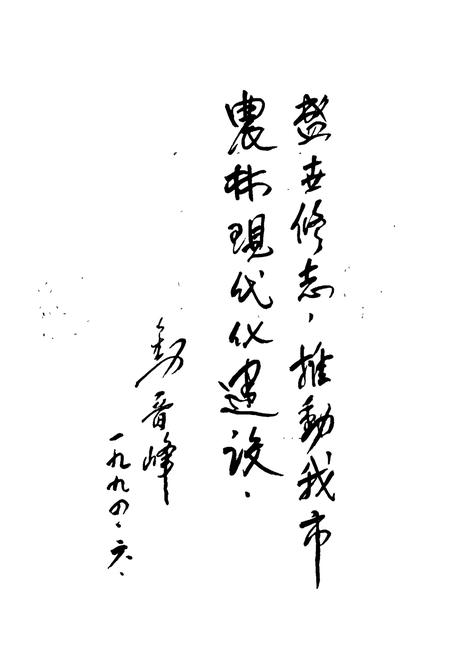 盛世修志，推動我市
農林現代化建设.
劉晋峰
一九九四.六.